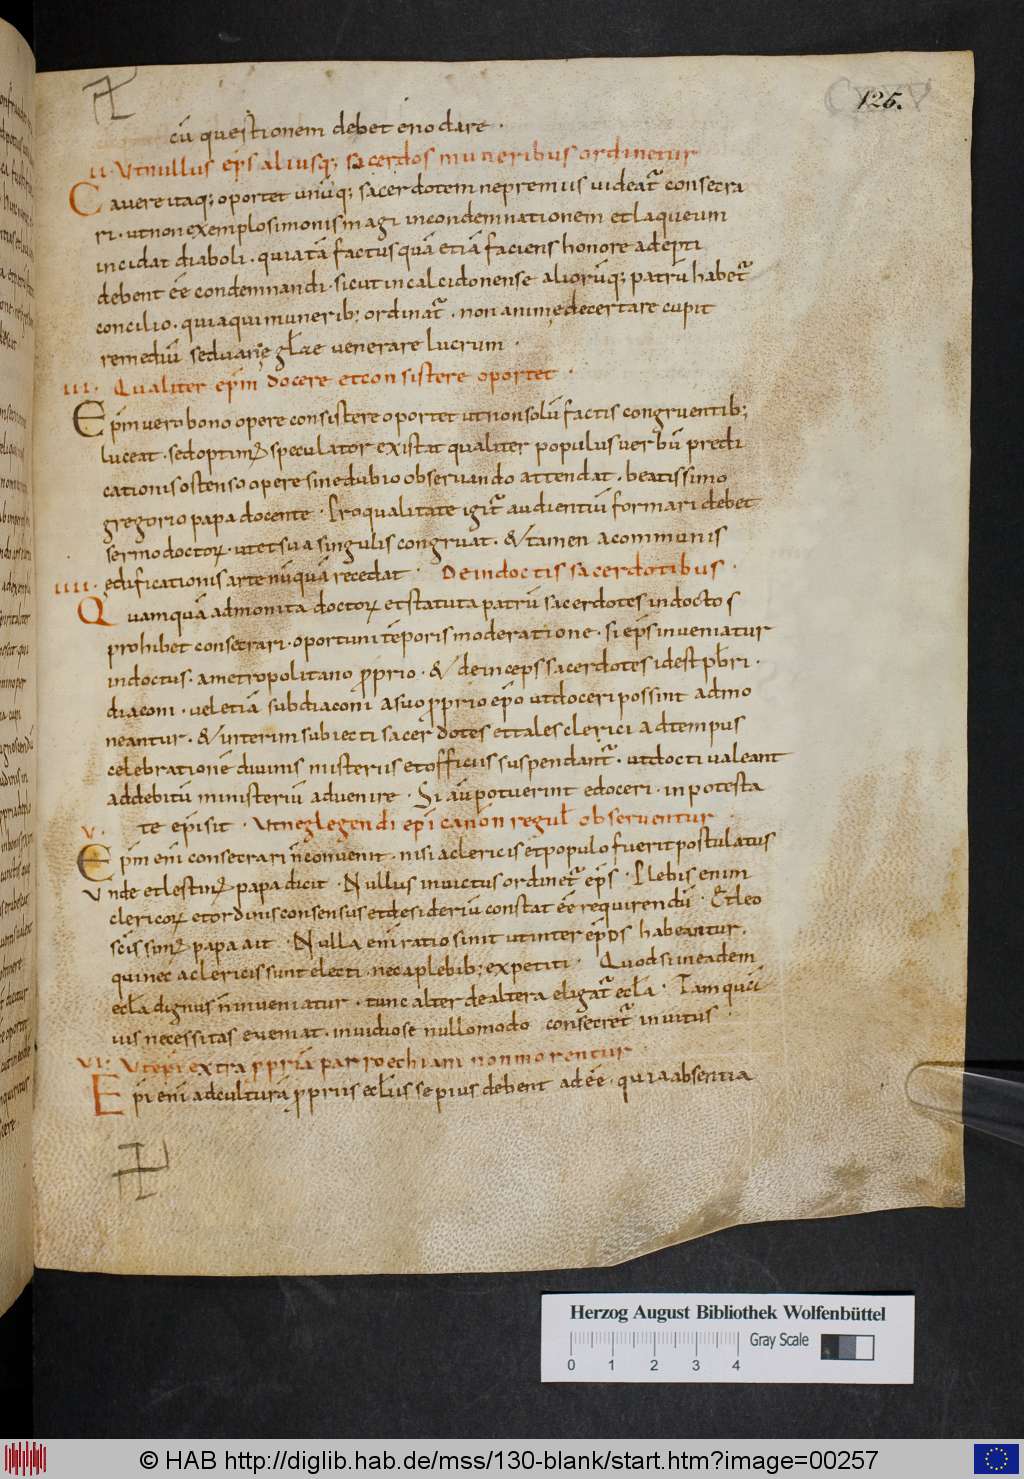 125.
cū questionem debet enodare .
II. Ut nullus ep̄s aliusq; sacerdos muneribus ordinetur
Cavere itaq; oportet unūq; sacerdotem ne premiis videat᷑ consecra
ri . ut non exemplo simonis magi in condemnationem et laqueum
incidat diaboli . quia tā factus quā etiā faciens honore adepti
debent eē condemnandi . sicut in calcidonense aliorūq; patrū habet᷑
concilio . quia qui munerib; ordinat᷑ . non animę decertare cupit
remediū sed vanię gl̄ae venerare lucrum .
III. Qualiter ep̄m docere et consistere oportet .
Ep̄m vero bono opere consistere oportet ut non solū factis congruentib;
luceat . sed optimꝰ speculator existat qualiter populus verbū predi
cationis ostenso opere sine dubio observando attendat . beatissimo
gregorio papa docente . Pro qualitate igit᷑ audientiū formari debet
sermo doctoꝝ . ut et sua singulis congruat . & tamen a communis
edificationis arte nūquā recedat . De indoctis sacerdotibus .
IIII.
Quamquā admonita doctoꝝ et statuta patrū sacerdotes indoctos
prohibet consecrari . oportuni tēporis moderatione . si ep̄s inveniatur
indoctus . a metropolitano p̄prio . & deinceps sacerdotes id est pb̄ri .
diaconi . vel etiā subdiaconi a suo p̄prio ep̄o ut doceri possint admo
neantur . & interim subiecti sacerdotes et tales clerici ad tempus
celebrationē divinis misteriis et officiis suspendant᷑ . ut docti valeant
ad debitū ministeriū advenire . Si aū potuerint edoceri . in potesta
te ep̄i sit . Ut neglegendi ep̄i canōn regul̄ observentur .
V.
Ep̄m eni consecrari n̄ convenit . nisi a clericis et populo fuerit postulatus
Unde et lestinꝰ papa dicit . Nullus invictus ordinet᷑ ep̄s . Plebis enim
clericoꝝ et ordinis consensus et desideriū constat eē requirendū . Et leo
sc̄issimꝰ papa ait . Nulla eni ratio sinit ut inter ep̄os habeantur .
qui nec a clericis sunt electi . nec a plebib; expetiti . Quod si in eadem
ecl̄a dignus n̄ inveniatur . tunc alter de altera eligat᷑ ecl̄a . Tamquci
vis necessitas eveniat . invidiose nullomodo consecret᷑ invitus .
VI. Ut ep̄i extra p̄priā parroechiam non morentur
Ep̄i eni ad culturā p̄priis ecl̄iis sepius debent adeē . quia absentia
Herzog August Bibliothek Wolfenbüttel
Gray Scale
0 1 2 3 4
© HAB http://diglib.hab.de/mss/130-blank/start.htm?image=00257